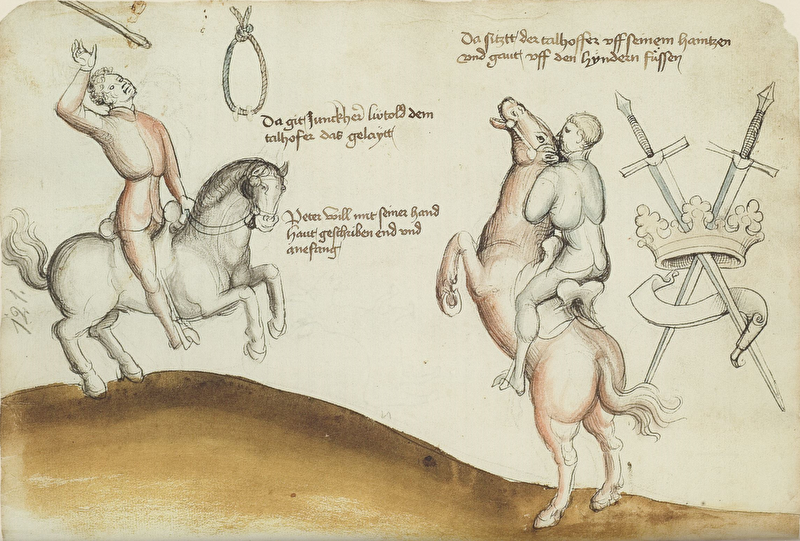 Da git Junckher lutold dem
talhofer das gelaytt
Peter will mit seiner hand
haut geschriben end und
anefang
Da sitzt der talhoffer uff seinem haintzen
und gaut uff den hyndern füssen
121.